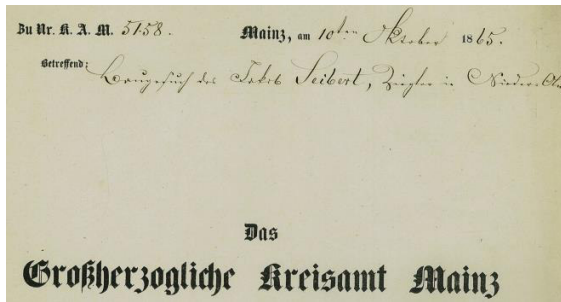 Zu Nr. K. A. M. 5158. Mainz, am 10ten Oktober 1865.
Betreffend: Baugesuch des Jakob Seibert, Ziegler in Nieder-Olm
Das
Großherzogliche Kreisamt Mainz